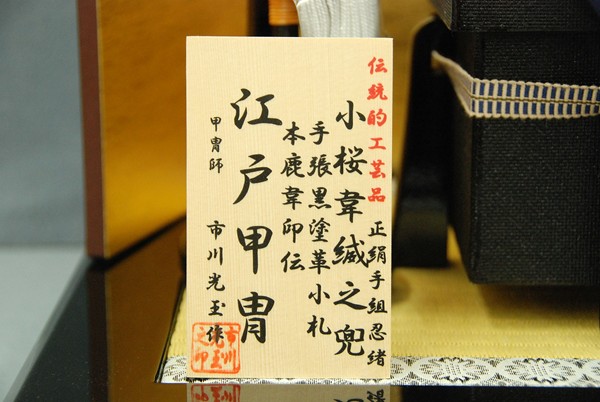 伝統的工芸品
正絹手組忍緒
小桜韋縅之兜
手張黒塗革小札
本鹿韋印伝
江戸甲冑
甲冑師 市川光玉作
市川光玉之印